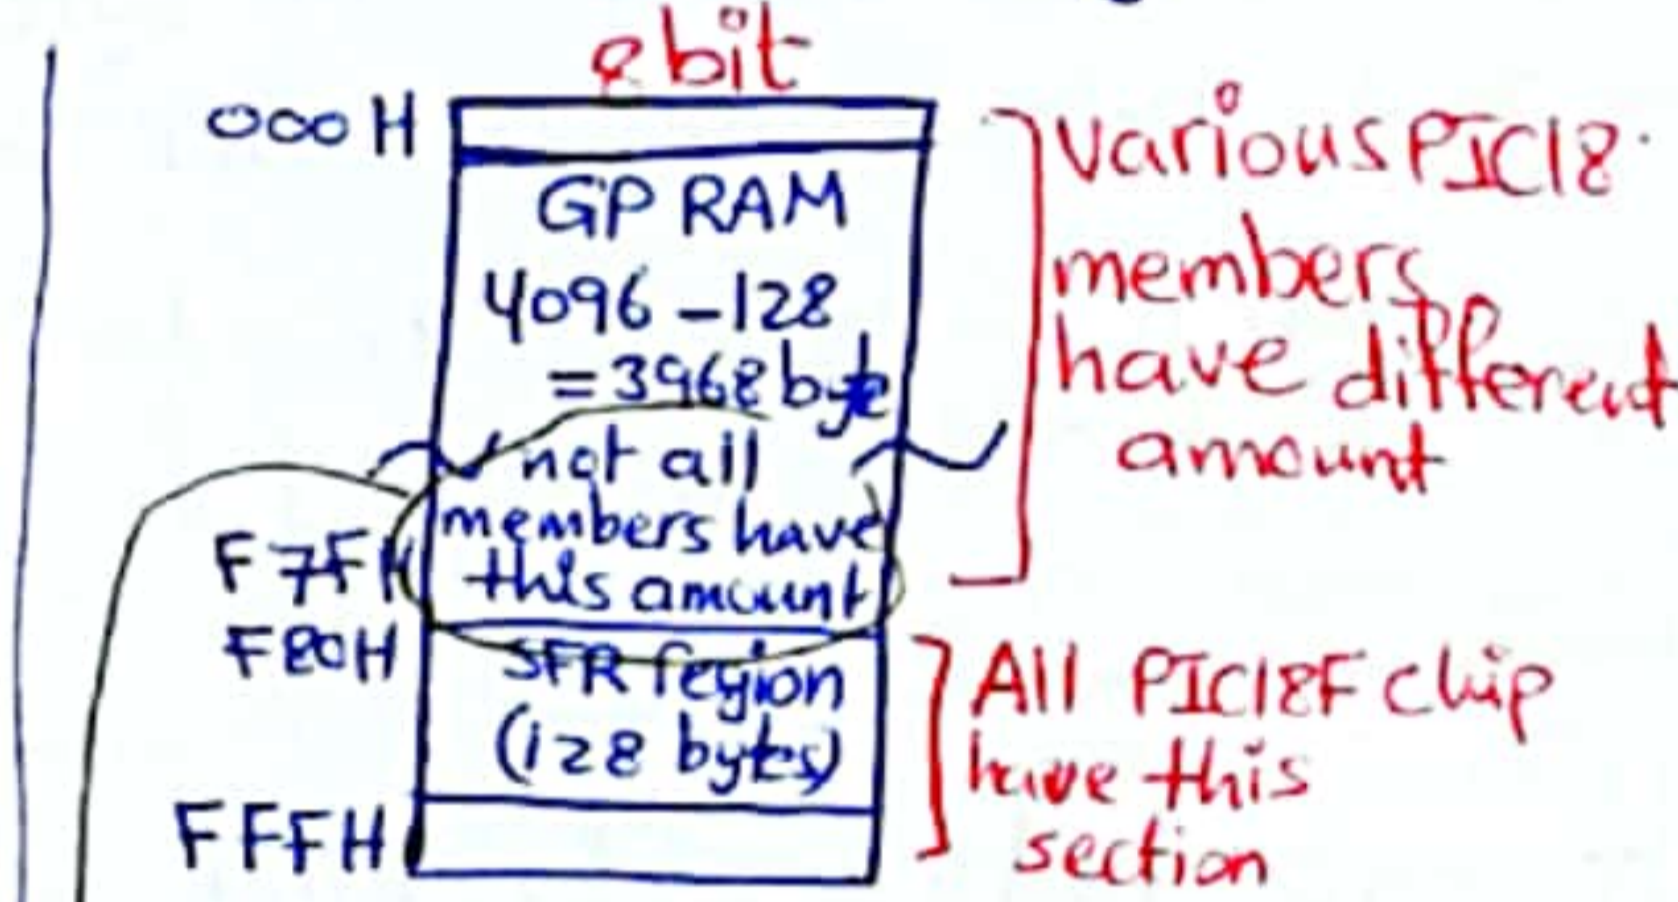 8bit
000H
GP RAM
4096 - 128
= 3968 byte
not all
members have
this amount
F7FH
F80H
SFR region
(128 bytes)
FFFH
Various PIC18
members
have different
amount
All PIC18F chip
have this
section